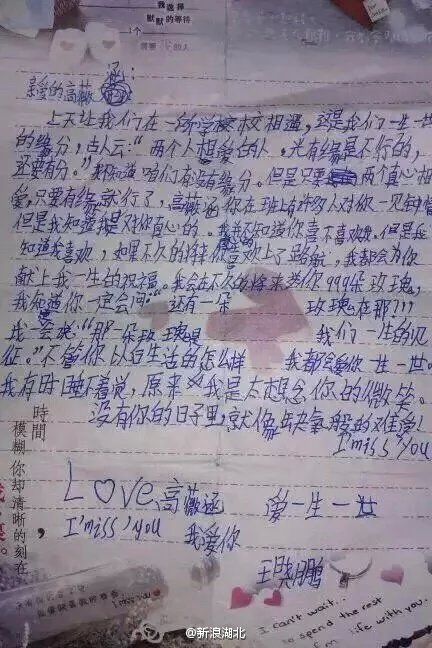 我选择
默默的等待
1个
需要 的人
亲爱的高薇涵:
上天让我们在一所学校相遇,这是我们一生一世
的缘分,古人云:“两个人想爱的人,光有缘是不行的,
还要有分。”我知道咱们有没有缘分。但是只要 两个真心相
爱,只要有缘就行了,高薇涵你在班上有许多人对你一见钟情
但是我知道我是对你真心的。我 知道你喜不喜欢我,但是我
知道我喜欢,如果不久的将来你喜欢上了路航,我都会为你
献上我一生的祝福。我会在不久的将来送你999朵玫瑰,
我知道你一定会问:还有一朵 玫瑰在那???
我会说“那一朵玫瑰是 我们一生的见
证。”不管你以后生活的怎么样 我都会爱你一生一世。
我有时睡不着觉,原来 我是太想念你的微笑。
没有你的日子里,就像缺氧般的难受!
I'miss'you
Love高薇涵 爱一生一世
I'miss'you 我爱你
王晓鹏
時間,
模糊你却清晰的刻在
I can't wait...
to spend the rest
of my life with you.
@新浪湖北